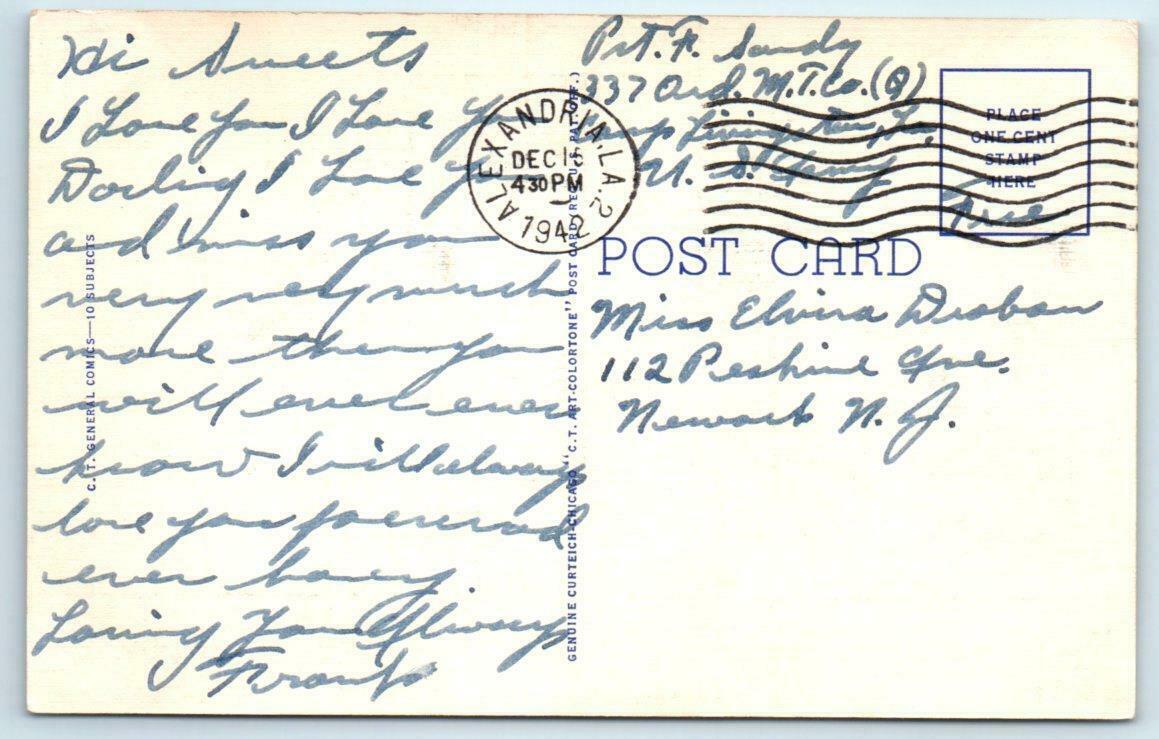 Hi Sweets
I Love You I Love You
Darling I Love You
and miss you
very very much
more then you
will ever ever
know I will always
love you forever and
ever honey.
Loving You Always
Frank
C. T. GENERAL COMICS—10 SUBJECTS
GENUINE CURTEICH-CHICAGO "C. T. ART-COLORTONE" POST CARD (REG. U.S. PAT. OFF.)
Pvt. F. Sandy
337 Ord. M.T. Co. (Q)
Camp Livingston, La.
U. S. Army
Free
ALEXANDRIA, LA. 2
DEC 15
4 30 PM
1942
PLACE
ONE CENT
STAMP
HERE
POST CARD
Miss Elvira
112 Peshine Ave.
Newark N. J.